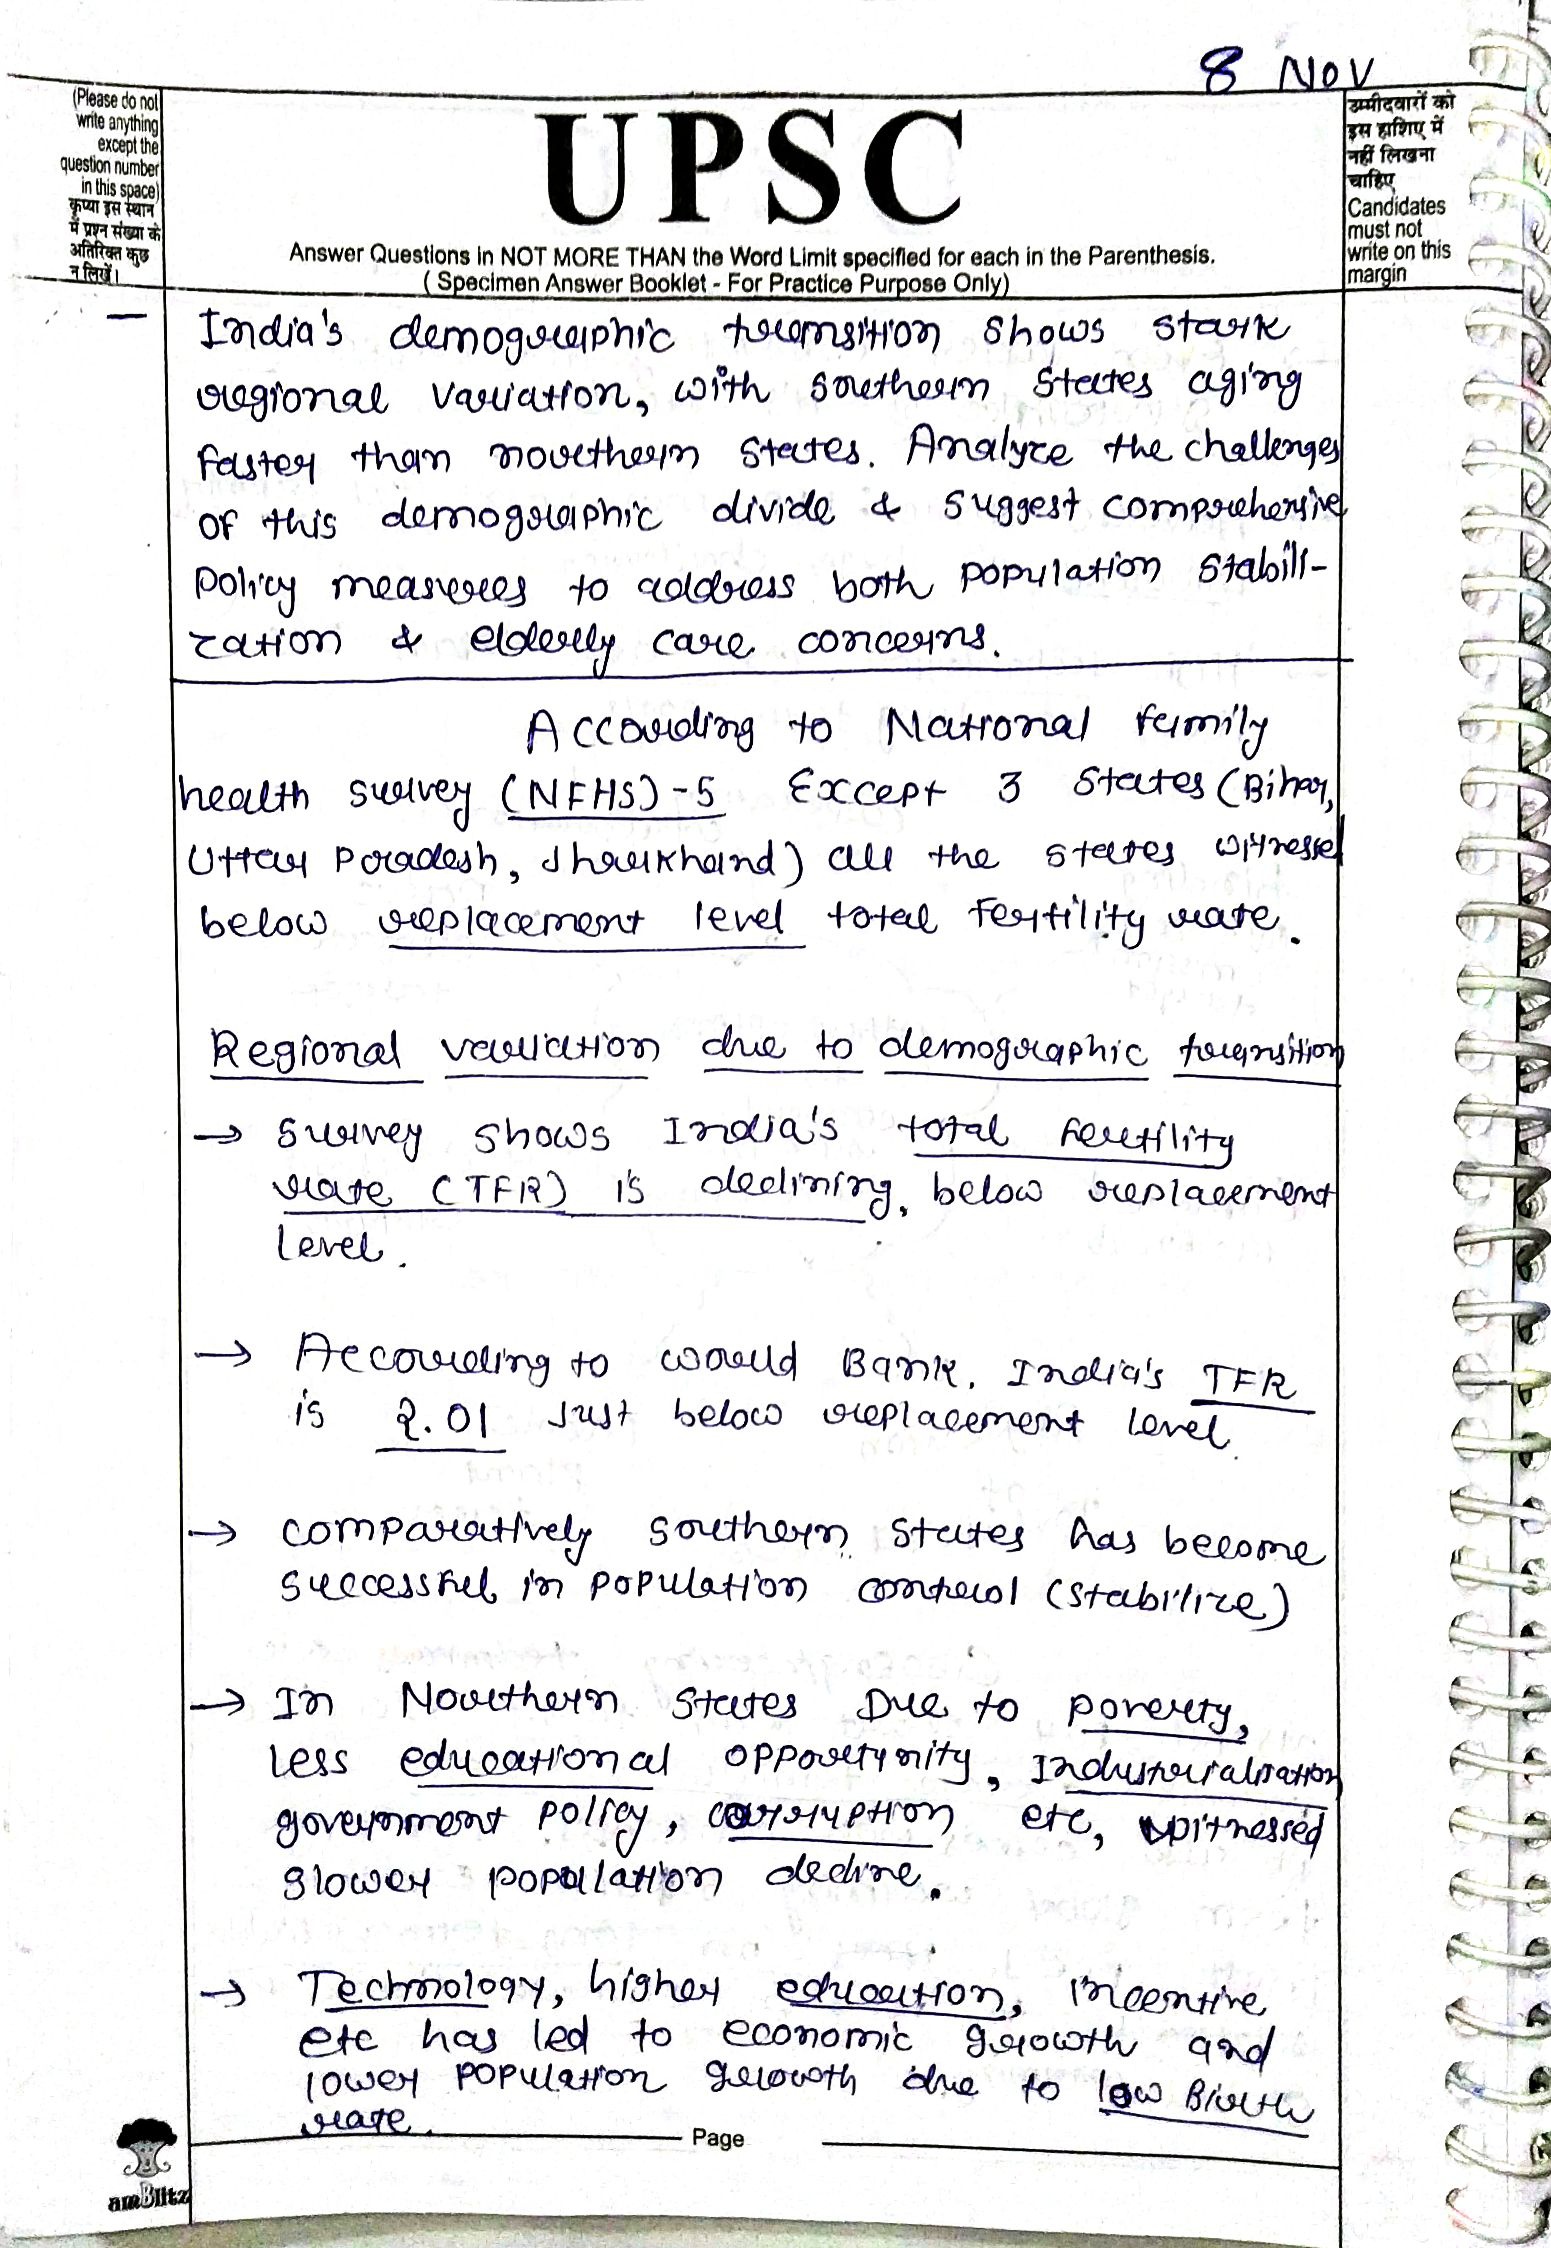 8 Nov
(Please do not
write anything
except the
question number
in this space)
कृप्या इस स्थान
में प्रश्न संख्या के
अतिरिक्त कुछ
न लिखें।
UPSC
Answer Questions in NOT MORE THAN the Word Limit specified for each in the Parenthesis.
( Specimen Answer Booklet - For Practice Purpose Only)
उम्मीदवारों को
इस हाशिए में
नहीं लिखना
चाहिए
Candidates
must not
write on this
margin
- India's demographic transition shows stark
regional variation, with southern states aging
faster than northern states. Analyze the challenges
of this demographic divide & suggest comprehensive
policy measures to address both population stabili-
zation & elderly care concerns.
According to National family
health survey (NFHS)-5 Except 3 states (Bihar,
Uttar Pradesh, Jharkhand) all the states witnessed
below replacement level total fertility rate.
Regional variation due to demographic transition
→ Survey shows India's total fertility
rate (TFR) is declining, below replacement
level.
→ According to World Bank. India's TFR
is 2.01 Just below replacement level.
→ Comparatively southern states has become
successful in population control (stabilize)
→ In Northern states Due to poverty,
less educational opportunity, Industrialisation
government policy, corruption etc, witnessed
slower population decline.
→ Technology, higher education, incentive
etc has led to economic growth and
lower population growth due to low Birth
rate.
Page
amBlitz